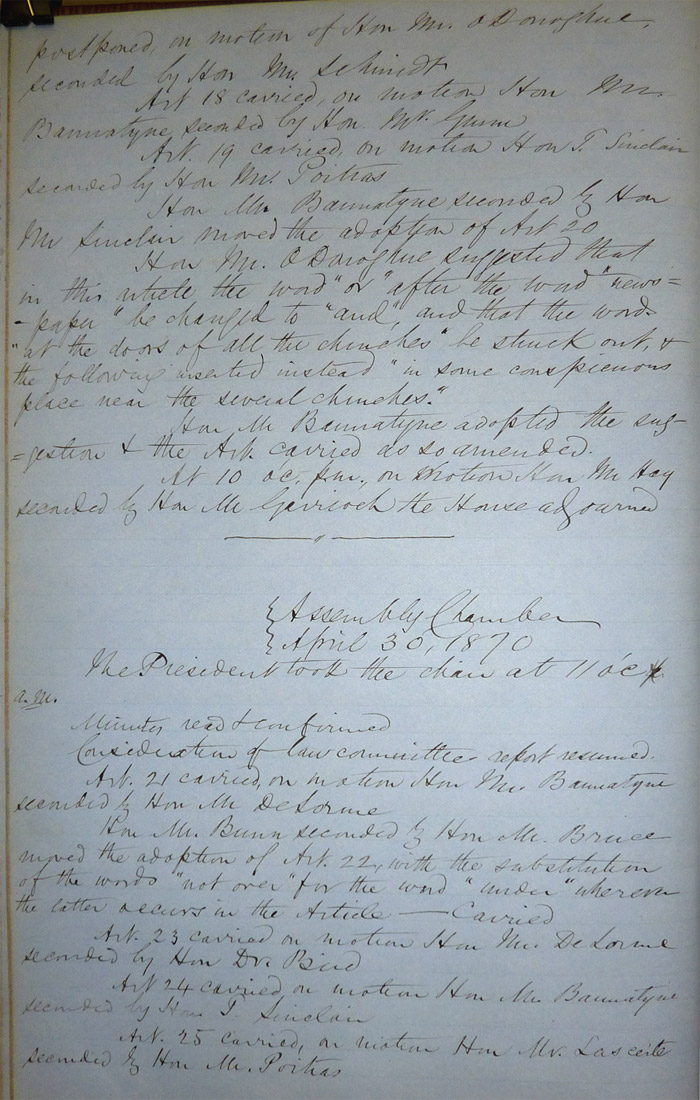 postponed, on motion of Hon Mr. O'Donoghue,
seconded by Hon Mr. Schmidt
Art 18 carried, on motion Hon Mr.
Bannatyne, seconded by Hon. Mr. Gunn
Art. 19 carried, on motion Hon T. Sinclair
seconded by Hon Mr. Poitras
Hon Mr. Bannatyne seconded by Hon
Mr Sinclair moved the adoption of Art 20
Hon Mr. O'Donoghue suggested that
in this article the word "or" after the word "news=
-paper" be changed to "and", and that the words
"at the doors of all the churches" be struck out, &
the following inserted instead "in some conspicuous
place near the several churches."
Hon Mr Bannatyne adopted the sug-
=gestion & the Art. carried as so amended.
At 10 oc. p.m., on motion Hon Mr Hay
seconded by Hon Mr Garrioch the House adjourned
Assembly Chamber
April 30, 1870
The President took the chair at 11 o'c
a.m.
Minutes read & confirmed
Consideration of law committee report resumed.
Art. 21 carried, on motion Hon Mr. Bannatyne
seconded by Hon Mr DeLorme
Hon Mr. Bunn seconded by Hon Mr. Bruce
moved the adoption of Art. 22, with the substitution
of the words "not over" for the word "under" wherever
the latter occurs in the Article — Carried
Art. 23 carried on motion Hon Mr. De Lorme
seconded by Hon Dr. Bird
Art 24 carried on motion Hon Mr Bannatyne
seconded by Hon T Sinclair
Art. 25 carried, on motion Hon Mr. Lascerte
seconded by Hon Mr. Poitras